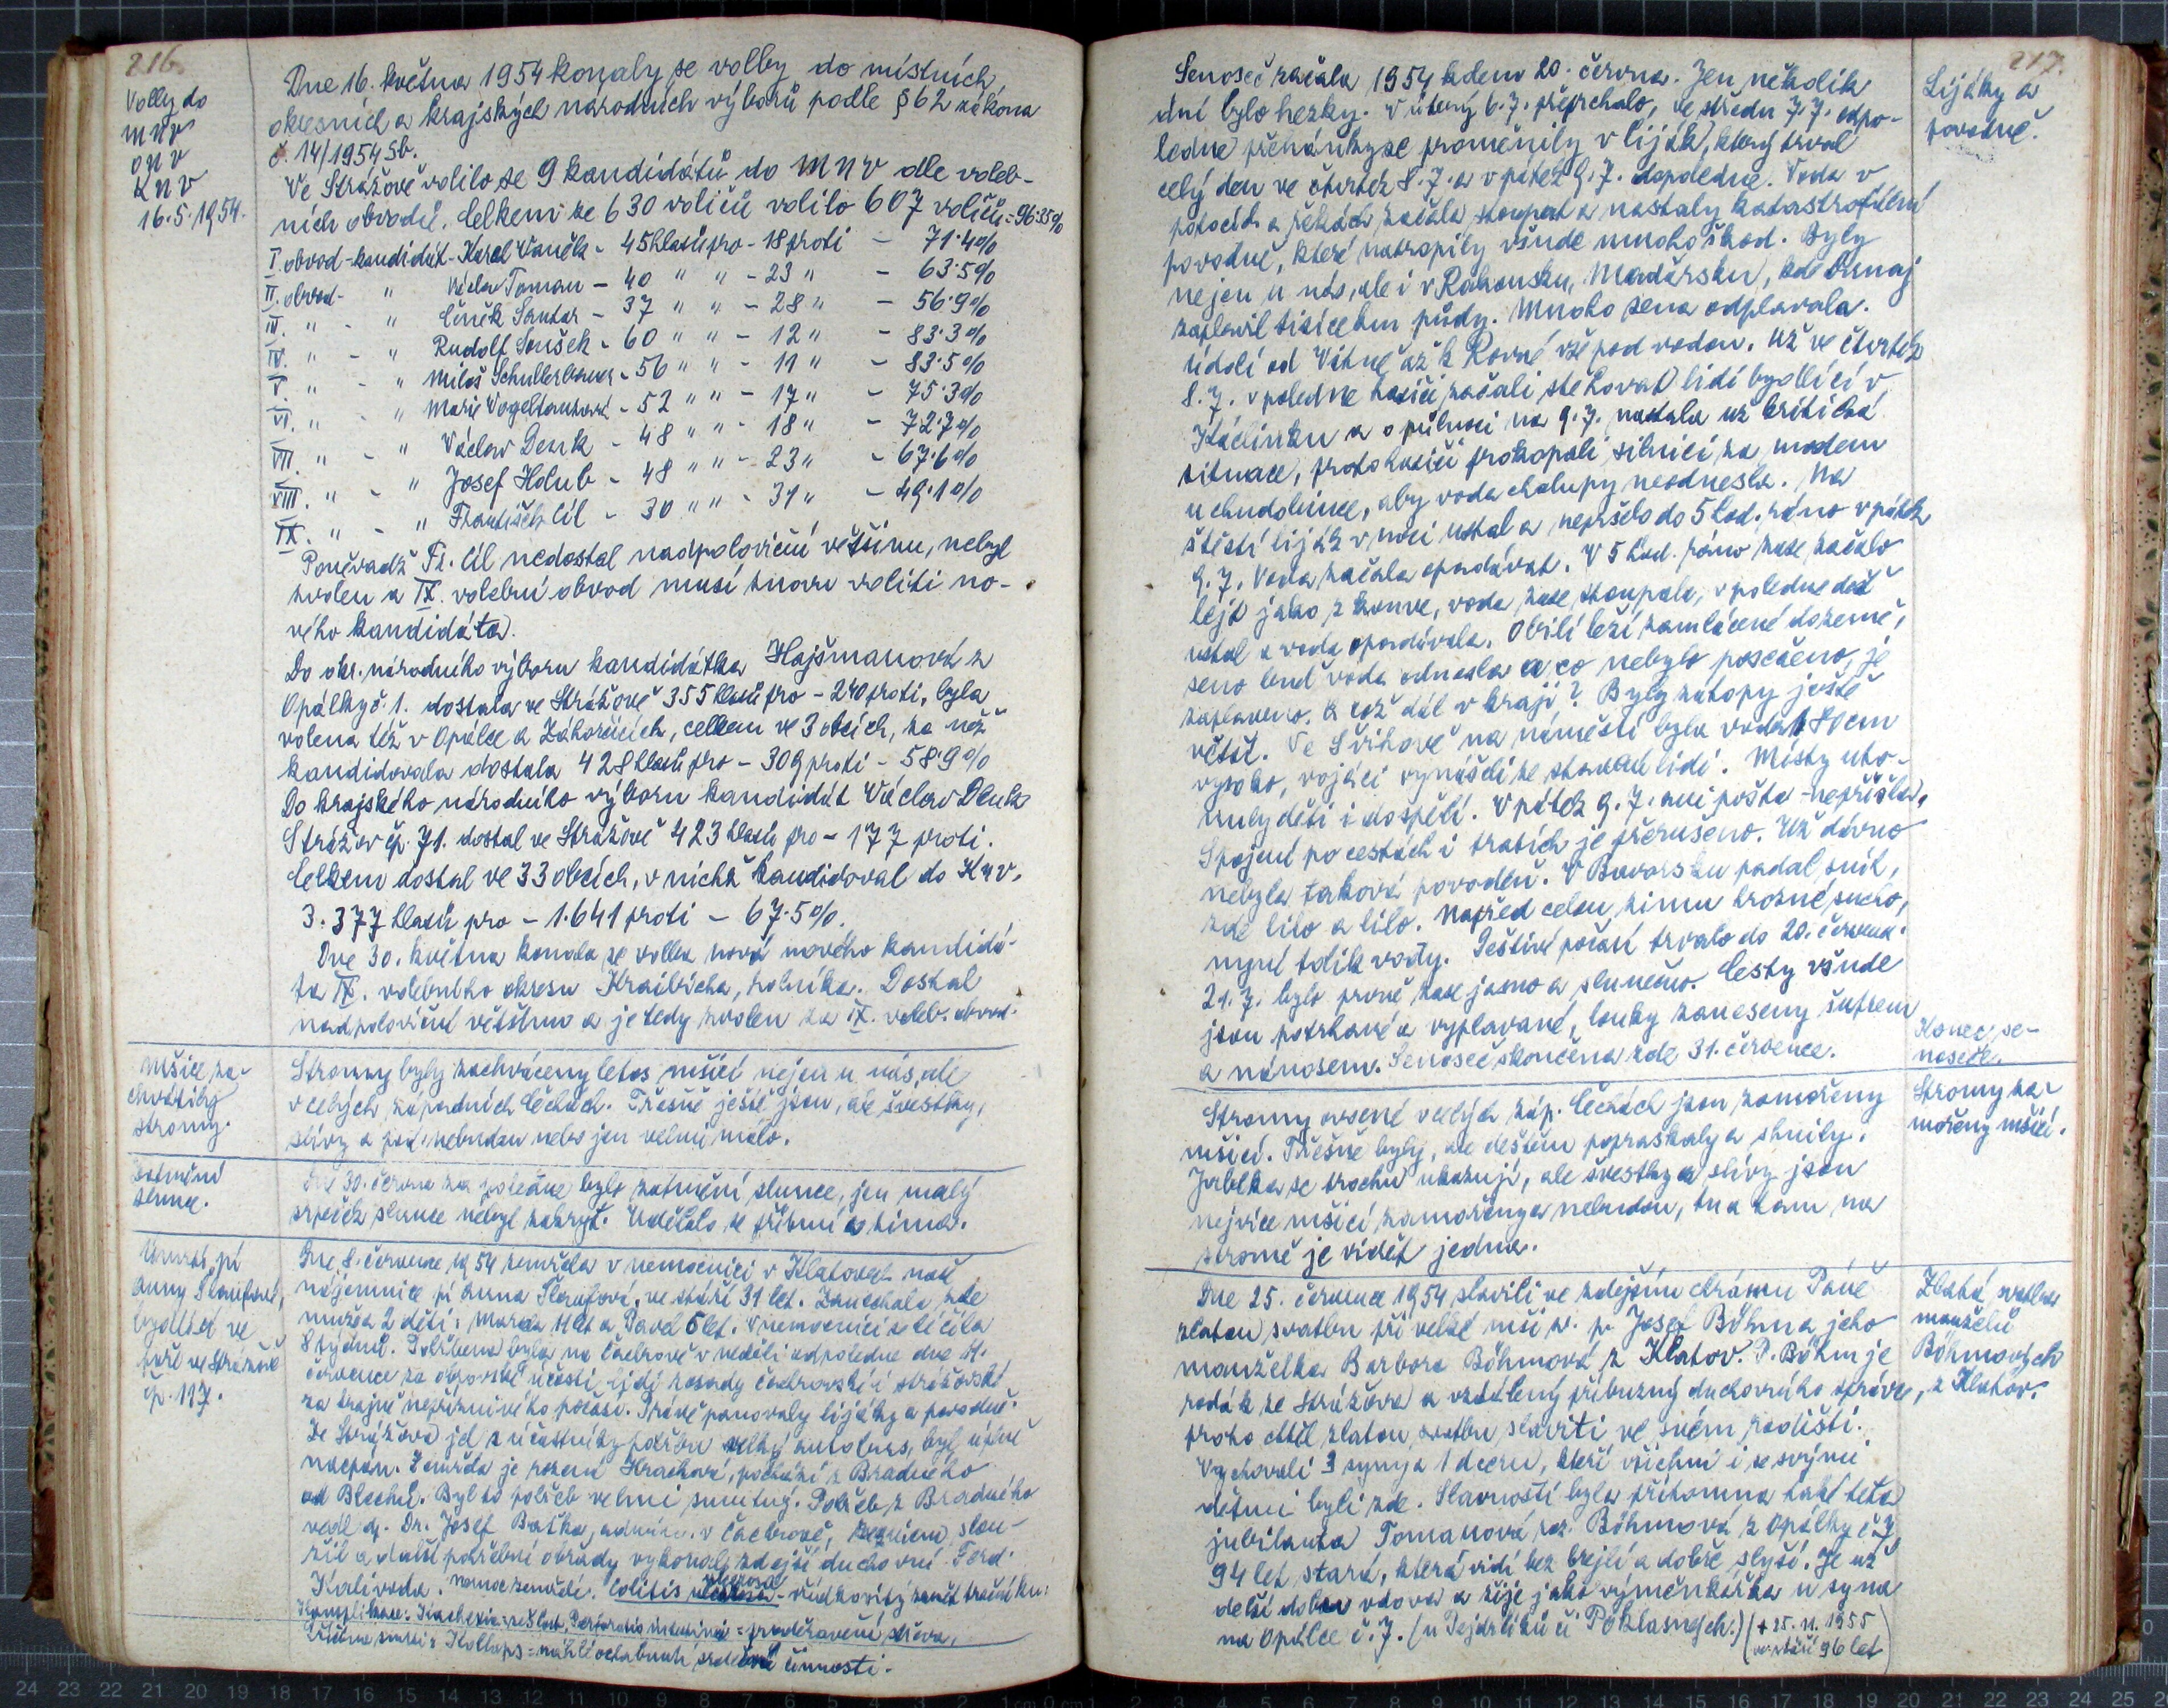 216.
Volby do
MNV
ONV
KNV
16.5.1954.
Dne 16. května 1954 konaly se volby do místních,
okresních a krajských národních výborů podle § 62 zákona
č. 14/1954 Sb.
Ve Strážově volilo se 9 kandidátů do MNV dle voleb-
ních obvodů. Celkem ze 630 voličů volilo 607 voličů = 96.35%
I. obvod - kandidát - Karel Vaněk - 45 hlasů pro - 18 proti - 71.4%
II. obvod - " Václav Toman - 40 " " - 23 " - 63.5%
III. " - " Čeněk Santar - 37 " " - 28 " - 56.9%
IV. " - " Rudolf Soušek - 60 " " - 12 " - 83.3%
V. " - " Miloš Schullerbauer - 56 " " - 11 " - 83.5%
VI. " - " Marie Vogeltanzová - 52 " " - 17 " - 75.3%
VII. " - " Václav Denk - 48 " " - 18 " - 72.7%
VIII. " - " Josef Holub - 48 " " - 23 " - 67.6%
IX. " - " František Cíl - 30 " " - 31 " - 49.1%
Poněvadž Fr. Cíl nedostal nadpoloviční většinu, nebyl
zvolen a IX. volební obvod musí znovu voliti no-
vého kandidáta.
Do okr. národního výboru kandidátka Hajšmanová z
Opálky č. 1. dostala ve Strážově 355 hlasů pro - 240 proti, byla
volena též v Opálce a Záhorčicích, celkem ve 3 obcích, za něž
kandidovala dostala 428 hlasů pro - 309 proti - 58.9%
Do krajského národního výboru kandidát Václav Denk
Strážov čp. 71. dostal ve Strážově 423 hlasů pro - 177 proti.
Celkem dostal ve 33 obcích, v nichž kandidoval do KNV,
3.377 hlasů pro - 1.641 proti - 67.5%.
Dne 30. května konala se volba nová nového kandidá-
ta IX. volebního okresu Kraibicha, rolníka. Dostal
nadpoloviční většinu a je tedy zvolen za IX. voleb. obvod.
Mšice za-
chvátily
stromy.
Stromy byly zachváceny letos mšicí nejen u nás, ale
v celých západních Čechách. Třešně ještě jsou, ale švestky,
slívy a pod. nebudou nebo jen velmi málo.
Zatmění
slunce.
Dne 30. června za poledne bylo zatmění slunce, jen malý
srpeček slunce nebyl zakryt. Udělalo se přítmí a zima.
Úmrtí pí
Anny Flaufové,
bydlící ve
faře ve Strážově
čp. 117.
Dne 8. července 1954 zemřela v nemocnici v Klatovech naše
nájemnice pí Anna Flaufová, ve stáří 31 let. Zanechala zde
muže a 2 děti: 11 let a Pavel 5 let. V nemocnici se léčila
8 týdnů. Pohřbena byla na Čachrově v neděli odpoledne dne 11.
července za obrovské účasti lidí z osady čachrovské i strážovské
za krajně nepříznivého počasí. Právě panovaly lijáky a povodně.
Ze Strážova jel s účastníky pohřbu velký autobus, byl úplně
nacpán. Zemřelá je rozená Hrachová, pochází z Bradného
od Blechů. Byl to pohřeb velmi smutný. Pohřeb z Bradného
vedl dp. Dr. Josef Baťka, admin. v Čachrově, requiem slou-
žil a další pohřební obřady vykonal zdejší duchovní Ferd.
Kalivoda. nemoc zemřelé: Colitis ulcerosa - vředkovitý zánět tračníku.
Komplikace: Kachexie = sešlost, Perforatio intestini = proděravění střeva,
Příčina smrti: Kollaps = náhlé ochabnutí srdeční činnosti.
217.
Senoseč začala 1954 kdem 20. června. Jen několik
dní bylo hezky. V úterý 6.7. přeprchalo, ve středu 7.7. odpo-
ledne přeháňky se proměnily v liják, který trval
celý den ve čtvrtek 8.7. a v pátek 9.7. dopoledne. Voda v
potocích a řekách začala stoupat a nastaly katastrofální
povodně, které natropily všude mnoho škod. Byly
nejen u nás, ale i v Rakousku, Maďarsku, kde Dunaj
zaplavil tisíce km půdy. Mnoho sena odplavala.
Údolí od Vítně až k Rovné vše pod vodou. Už ve čtvrtek
8.7. v poledne hasiči začali stěhovat lidi bydlící v
Káclinku a o půlnoci na 9.7. nastala už kritická
situace, proto hasiči prokopali silnici za mostem
u chudobince, aby voda chalupy neodnesla. Na
štěstí liják v noci ustal a nepršelo do 5 hod. ráno v pátek
9.7. Voda začala opadávat. V 5 hod. ráno zase začalo
lejt jako z konve, voda zase stoupala, v poledne déšť
ustal a voda opadávala. Obilí leží zamlácené do země,
seno buď voda odnesla a co nebylo posečeno, je
zaplaveno. A což dál v kraji? Byly zátopy ještě
větší. Ve Švihově na náměstí byla voda 180 cm
vysoko, vojáci vynášeli ze staveb lidi. Místy uto-
nuly děti i dospělí. V pátek 9.7. ani pošta nepřišla.
Spojení po cestách i tratích je přerušeno. Už dávno
nebyla taková povodeň. V Bavorsku padal sníh,
zde lilo a lilo. Napřed celou zimu hrozné sucho,
nyní tolik vody. Deštivé počasí trvalo do 20. července.
21.7. bylo prvně zase jasno a slunečno. Cesty všude
jsou potrhané a vyplavané, louky zaneseny šutrem
a nánosem. Senoseč skončena zde 31. července.
Lijáky a
povodně.
Konec se-
noseče.
Stromy ovocné v celých záp. Čechách jsou zamořeny
mšicí. Třešně byly, ale deštěm popraskaly a shnily.
Jablka se trochu ukazují, ale švestky a slívy jsou
nejvíce mšicí zamořeny a nebudou, tu a tam na
stromě je vidět jedna.
Stromy za-
mořeny mšicí.
Dne 25. července 1954 slavili ve zdejším chrámu Páně
zlatou svatbu při velké mši sv. p. Josef Böhm a jeho
manželka Barbora Böhmová z Klatov. P. Böhm je
rodák ze Strážova a vzdálený příbuzný duchovního správce,
proto chtěl zlatou svatbu slaviti ve svém rodišti.
Vychovali 3 syny a 1 dceru, kteří všichni i se svými
dětmi byli zde. Slavnosti byla přítomna také teta
jubilanta Tomanová roz. Böhmová z Opálky č. 7
94 let stará, která vidí bez brejlí a dobře slyší. Je už
delší dobu vdova a žije jako výměnkářka u syna
na Opálce č. 7. (u Pejdrlíků či Poklasných.) (+ 25.11.1955
ve stáří 96 let)
Zlatá svatba
manželů
Böhmových
z Klatov.